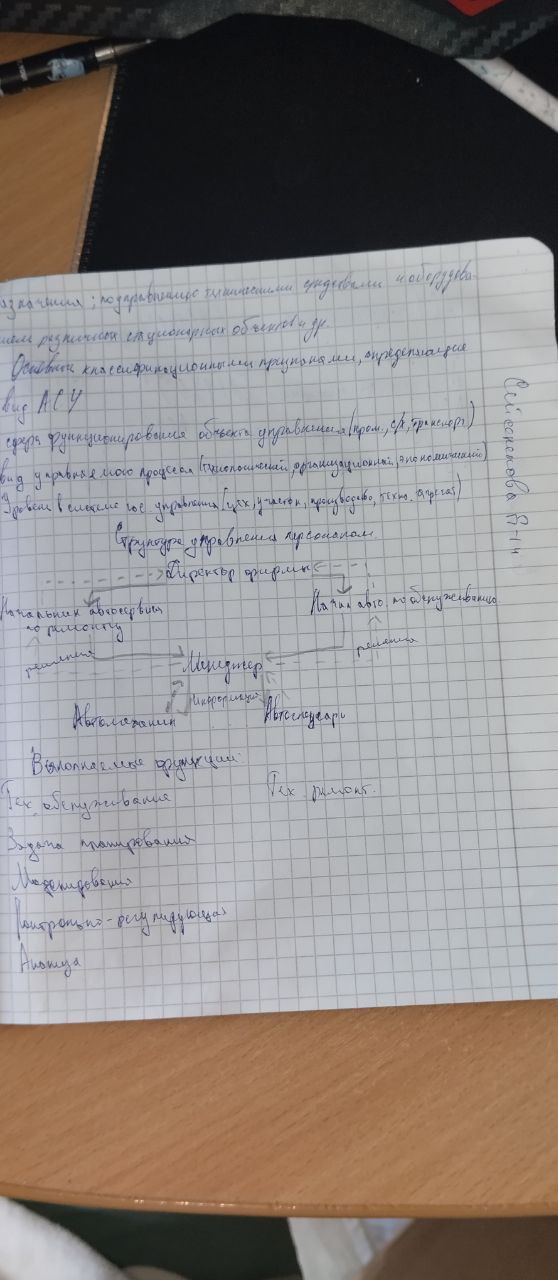 значения; подправленицо техническими средствами и оборудова
нием различных стационарных объектов и др.
Основными классификационными признаками, определяющие
вид АСУ
сфера функционирования объекта управления (пром., с/х, транспорт)
вид управляемого процесса (технологический, организационный, экономический)
Уровень в системе гос. управления (цех, участок, производство, техн. агрегат)
Структура управления персоналом
Директор фирмы
Начальник автосервиса
по ремонту
Начал авто. по обслуживанию
решения
решения
Менеджер
информация
Автомеханик
Автослесарь
Выполняемые функции:
Тех. обслуживание
Тех. ремонт.
Задача планирования
Моделирования
Контрольно-регулирующая
Анализа